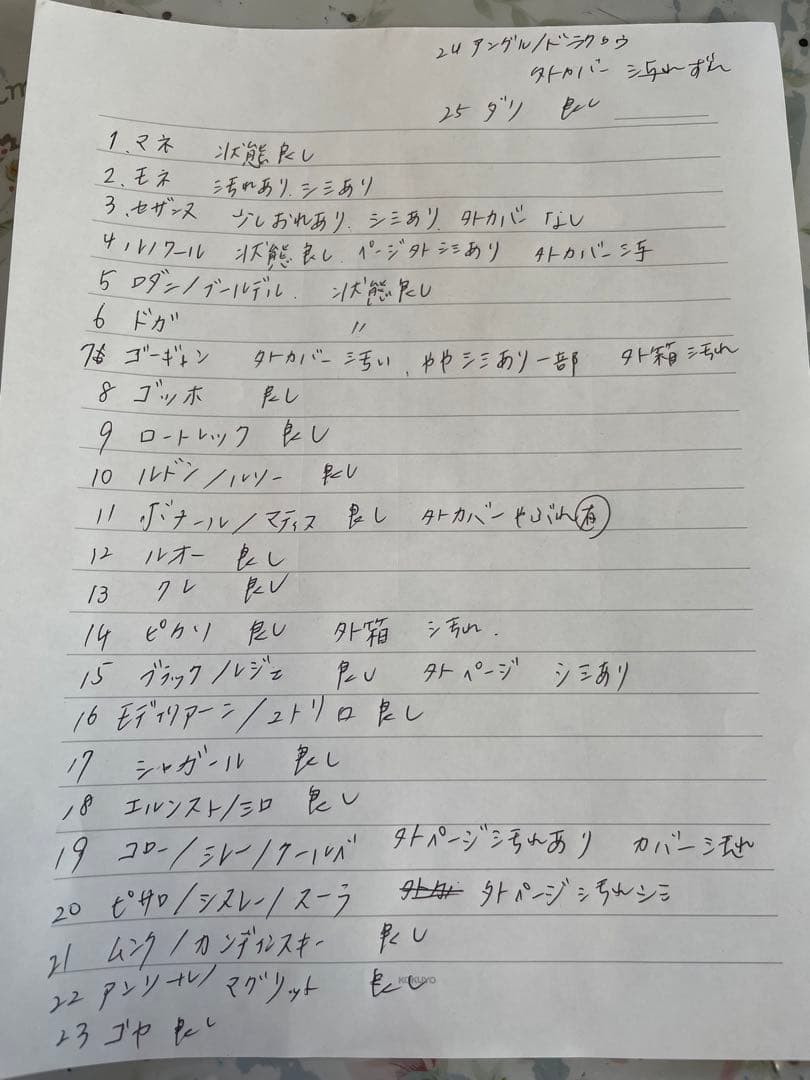 24 アングル/ドラクロワ
外カバー 汚れずれ
25 ダリ 良し
1. マネ 状態良し
2. モネ 汚れあり、シミあり
3. セザンヌ 少しおれあり、シミあり、外カバーなし
4 ルノワール 状態良し、ページ外シミあり 外カバー汚
5 ロダン/ブールデル. 状態良し
6 ドガ 〃
7 ゴーギャン 外カバー汚い、ややシミあり一部 外箱汚れ
8 ゴッホ 良し
9 ロートレック 良し
10 ルドン/ルソー 良し
11 ボナール/マティス 良し 外カバーやぶれ有
12 ルオー 良し
13 クレー 良し
14 ピカソ 良し 外箱 汚れ.
15 ブラック/レジェ 良し 外ページ シミあり
16 モディリアーニ/ユトリロ 良し
17 シャガール 良し
18 エルンスト/ミロ 良し
19 コロー/ミレー/クールベ 外ページ汚れあり カバー汚れ
20 ピサロ/シスレー/スーラ 外ページ汚れシミ
21 ムンク/カンディンスキー 良し
22 アンソール/マグリット 良し
KOKUYO
23 ゴヤ 良し